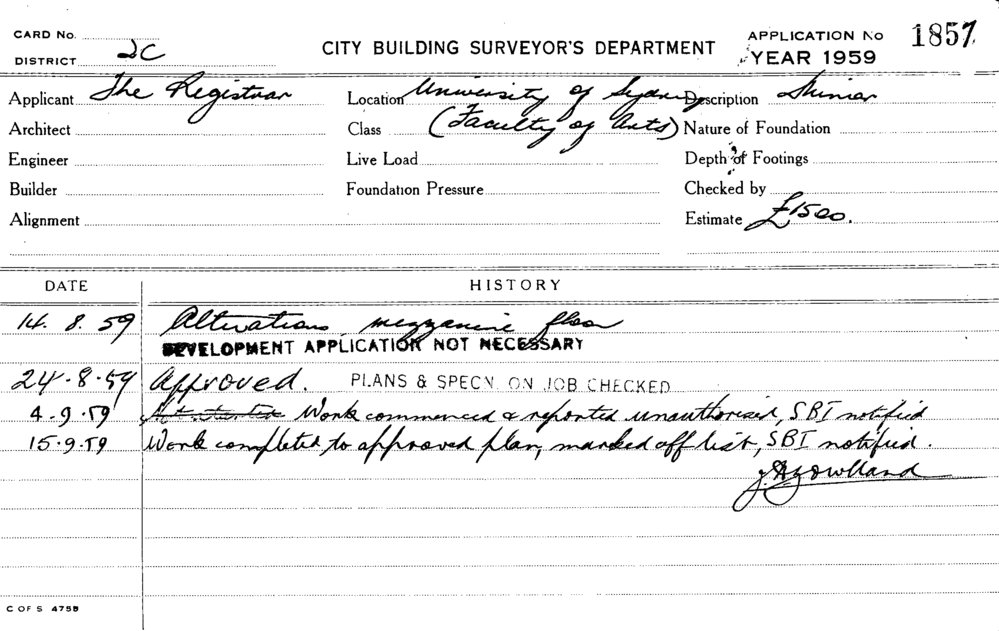 CARD No.
DISTRICT 2C
CITY BUILDING SURVEYOR'S DEPARTMENT
APPLICATION No 1857
YEAR 1959
Applicant The Registrar
Location University of Sydney
Description Minor
Architect
Class (Faculty of Arts)
Nature of Foundation
Engineer
Live Load
Depth of Footings
Builder
Foundation Pressure
Checked by
Alignment
Estimate £1500.
DATE HISTORY
14. 8. 59 Alterations mezzanine floor
DEVELOPMENT APPLICATION NOT NECESSARY
24-8-59 Approved. PLANS & SPECN. ON JOB CHECKED
4-9-59 Not started Work commenced & reported unauthorised, SBI notified
15-9-59 Work completed to approved plan, marked off list, SBI notified.
C OF S 475B